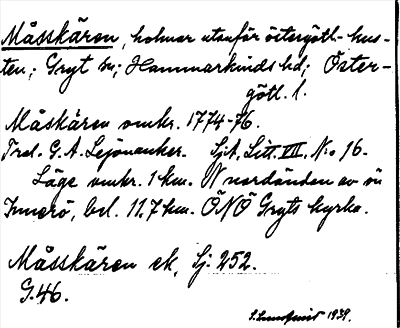 Måsskären, holmar utanför östergötl.-kus-
ten; Gryt sn; Hammarkinds hd; Öster-
götl. l.
Måskären omkr. 1774-76.
Tred. G. A. Lejonancker. Sjk. Litt. VII. No 16.
Läge omkr. 1 km. N nordänden av ön
Innerö, bel. 11.7 km. ÖNÖ Gryts kyrka.
Måsskären ek, Sj. 252.
G.46.
S. Lundqvist 1939.